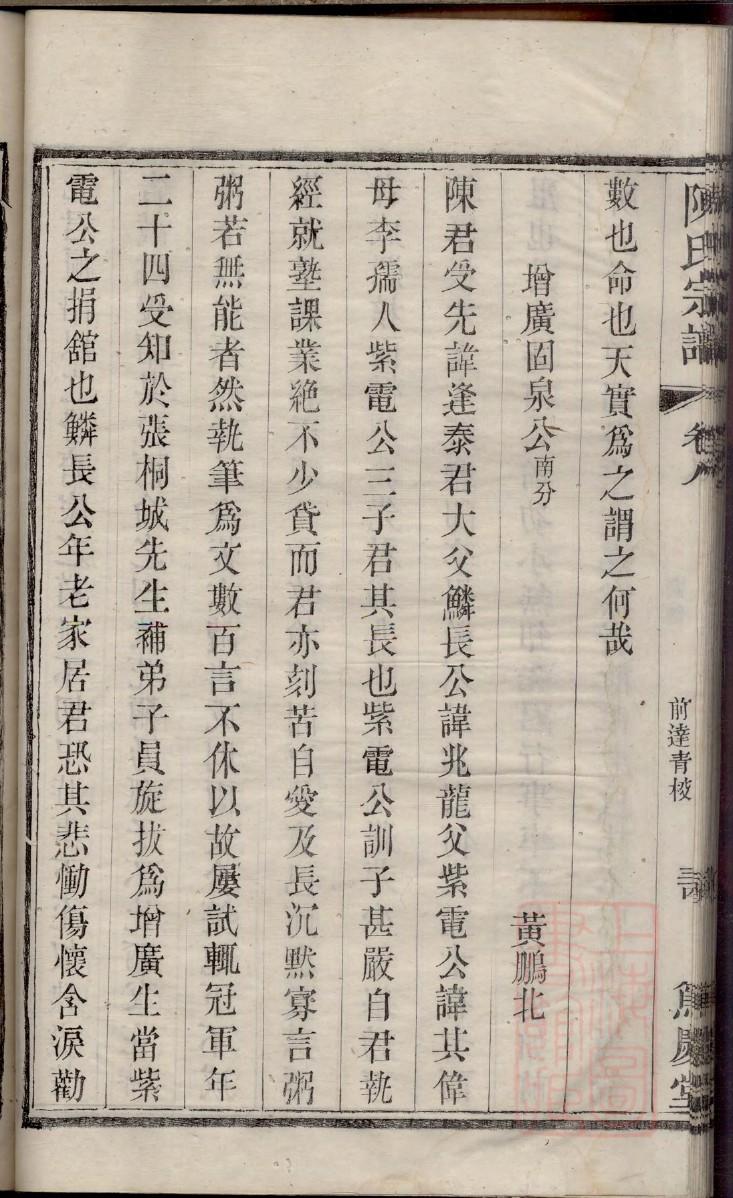 陳氏宗譜
卷八
前達青枝
篤慶堂
數也命也天實爲之謂之何哉
增廣固泉公南分
黃鵬北
陳君受先諱逢泰君大父鱗長公諱兆龍父紫電公諱其偉
母李孺人紫電公三子君其長也紫電公訓子甚嚴自君執
經就塾課業絶不少貸而君亦刻苦自愛及長沉默寡言粥
粥若無能者然執筆爲文數百言不休以故屢試輒冠軍年
二十四受知於張桐城先生補弟子員旋拔爲增廣生當紫
電公之捐舘也鱗長公年老家居君恐其悲慟傷懷含淚勸